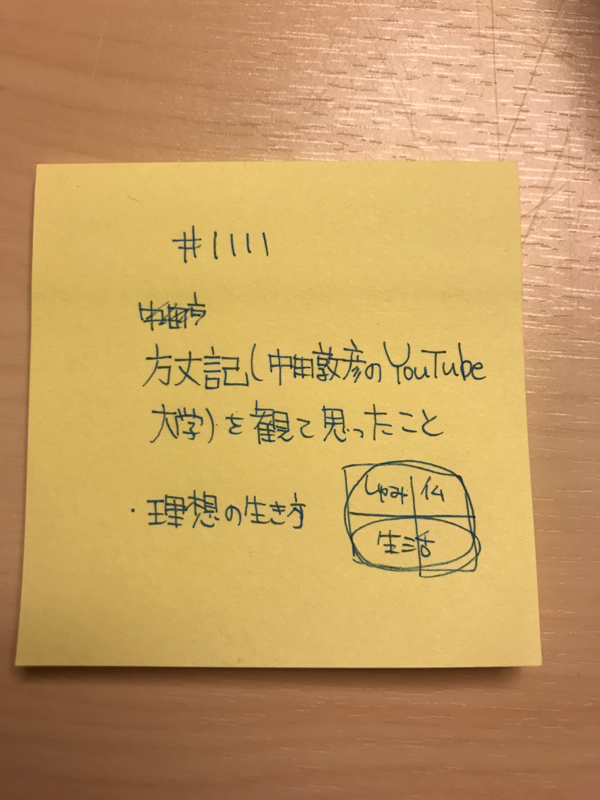 #1111
方丈記(中田敦彦のYouTube
大学)を観て思ったこと
・理想の生き方
しゅみ 仏
生活